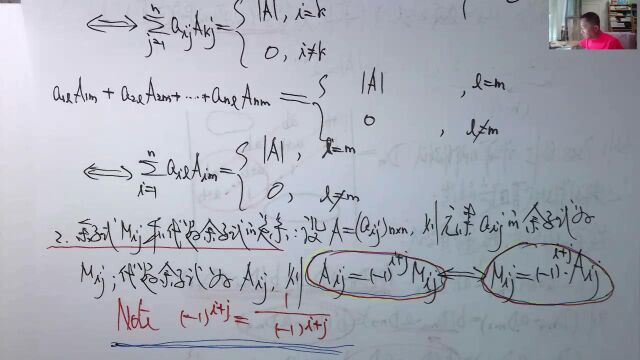 ⟺ ∑_{j=1}^{n} a_{ij}A_{kj} = { |A|, i=k
0, i≠k
a_{1l}A_{1m} + a_{2l}A_{2m} + ⋯ + a_{nl}A_{nm} = { |A| , l=m
0 , l≠m
⟺ ∑_{i=1}^{n} a_{il}A_{im} = { |A|, l=m
0, l≠m
2. 余子式M_{ij}和代数余子式的关系:设A=(a_{ij})_{n×n}, 则元素a_{ij}的余子式为
M_{ij}, 代数余子式为 A_{ij}, 则 A_{ij}=(-1)^{i+j}M_{ij} ⟺ M_{ij}=(-1)^{i+j}·A_{ij}
Note (-1)^{i+j} = 1/(-1)^{i+j}